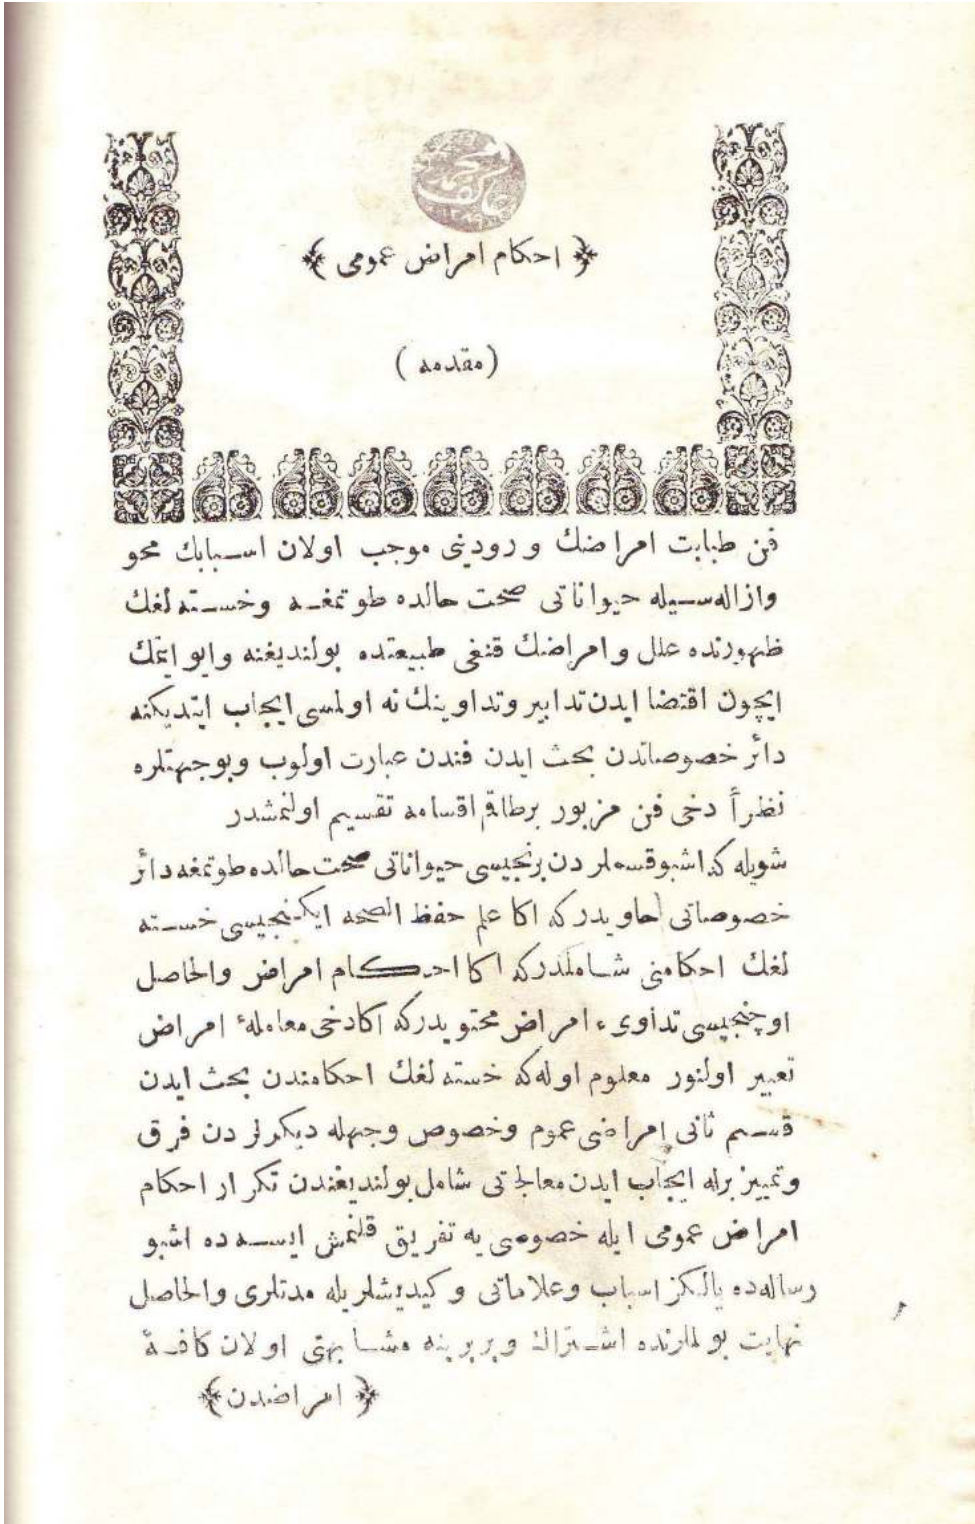 محمد عاكف
﴿ احكام امراض عمومی ﴾
( مقدمه )
فن طبابت امراضك ورودینی موجب اولان اسبابك محو
وازاله‌سیله حیواناتی صحت حالده طوتمغه وخسته‌لغك
ظهورنده علل وامراضك قنغی طبیعتده بولندیغنه وایو ایتمك
ایچون اقتضا ایدن تدابیر وتداوینك نه اولمسی ایجاب ایتدیكنه
دائر خصوصاتدن بحث ایدن فندن عبارت اولوب وبوجهتلره
نظراً دخی فن مزبور برطاقم اقسامه تقسیم اولنمشدر
شویله كه اشبو قسملردن برنجیسی حیواناتی صحت حالده طوتمغه دائر
خصوصاتی حاویدركه اكا علم حفظ الصحه ایكنجیسی خسته
لغك احكامنی شاملدركه اكا احكام امراض والحاصل
اوچنجیسی تداویء امراض محتویدركه اكادخی معاملهٔ امراض
تعبیر اولنور معلوم اوله‌كه خسته‌لغك احكامندن بحث ایدن
قسم ثانی امراضی عموم وخصوص وجهله دیكرلردن فرق
وتمییز برله ایجاب ایدن معالجاتی شامل بولندیغندن تكرار احكام
امراض عمومی ایله خصوصی یه تفریق قلنمش ایسه‌ده اشبو
رساله‌ده یالكز اسباب وعلاماتی وكیدیشلریله مدتلری والحاصل
نهایت بولملرنده اشتراك وبربرینه مشابهتی اولان كافهٔ
﴿ امراضدن ﴾